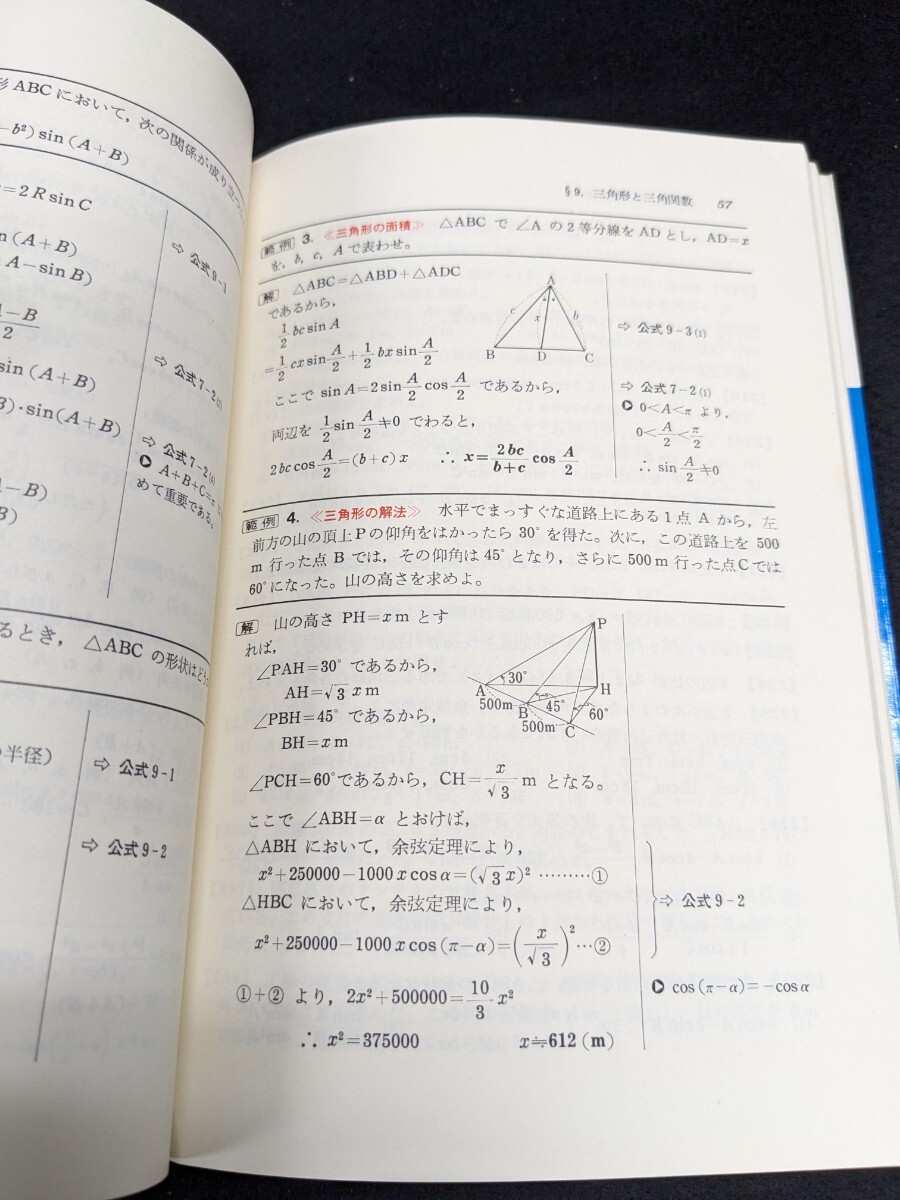 形ABCにおいて，次の関係が成り立つ
−b²) sin (A+B)
=2R sin C
⇨ 公式9-1
n (A+B)
A−sin B)
A−B
2
⇨ 公式7-2
sin (A+B)
B)·sin (A+B)
⇨ 公式7-2(4)
A+B+C=π
めて重要である。
A−B)
B)
るとき， △ABC の形状は
半径)
⇨ 公式9-1
⇨ 公式9-2
§9. 三角形と三角関数 57
範例 3. ≪三角形の面積≫ △ABC で ∠A の2等分線を AD とし，AD=x
を，b, c, A で表わせ。
解 △ABC=△ABD+△ADC
であるから，
1/2 bc sin A
=1/2 cx sin A/2 + 1/2 bx sin A/2
ここで sin A=2 sin A/2 cos A/2 であるから，
両辺を 1/2 sin A/2 ≠0 でわると，
2bc cos A/2 =(b+c) x ∴ x= 2bc/b+c cos A/2
A
c
x
b
B D C
⇨ 公式9-3(1)
⇨ 公式7-2(1)
0<A<π より，
0< A/2 < π/2
∴ sin A/2 ≠0
範例 4. ≪三角形の解法≫ 水平でまっすぐな道路上にある1点 A から，左
前方の山の頂上Pの仰角をはかったら 30° を得た。次に，この道路上を 500
m 行った点 B では，その仰角は 45° となり，さらに 500m 行った点Cでは
60°になった。山の高さを求めよ。
解 山の高さ PH=x m とす
れば，
∠PAH=30° であるから，
AH=√3 x m
∠PBH=45° であるから，
BH=x m
∠PCH=60°であるから，CH= x/√3 m となる。
P
A 30° H
500m B 45° 60°
500m C
ここで ∠ABH=α とおけば，
△ABH において，余弦定理により，
x²+250000−1000 x cos α=(√3 x)² ………①
△HBC において，余弦定理により，
⇨ 公式9-2
x²+250000−1000 x cos (π−α)=(x/√3)² …②
①+② より，2x²+500000= 10/3 x²
cos (π−α)=−cos α
∴ x²=375000 x≒612 (m)